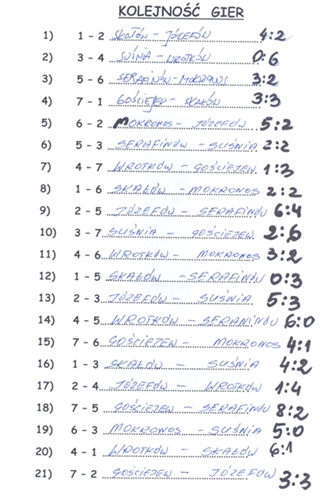 KOLEJNOŚĆ GIER
1) 1 - 2 SKAŁÓW - JÓZEFÓW 4:2
2) 3 - 4 SUŚNIA - WROTKÓW 0:6
3) 5 - 6 SERAFINÓW - MOKRONOS 3:2
4) 7 - 1 GOŚCIEJEW - SKAŁÓW 3:3
5) 6 - 2 MOKRONOS - JÓZEFÓW 5:2
6) 5 - 3 SERAFINÓW - SUŚNIA 2:2
7) 4 - 7 WROTKÓW - GOŚCIEJEW 1:3
8) 1 - 6 SKAŁÓW - MOKRONOS 2:2
9) 2 - 5 JÓZEFÓW - SERAFINÓW 6:4
10) 3 - 7 SUŚNIA - GOŚCIEJEW 2:6
11) 4 - 6 WROTKÓW - MOKRONOS 3:2
12) 1 - 5 SKAŁÓW - SERAFINÓW 0:3
13) 2 - 3 JÓZEFÓW - SUŚNIA 5:3
14) 4 - 5 WROTKÓW - SERAFINÓW 6:0
15) 7 - 6 GOŚCIEJEW - MOKRONOS 4:1
16) 1 - 3 SKAŁÓW - SUŚNIA 4:2
17) 2 - 4 JÓZEFÓW - WROTKÓW 1:4
18) 7 - 5 GOŚCIEJEW - SERAFINÓW 8:2
19) 6 - 3 MOKRONOS - SUŚNIA 5:0
20) 4 - 1 WROTKÓW - SKAŁÓW 6:1
21) 7 - 2 GOŚCIEJEW - JÓZEFÓW 3:3